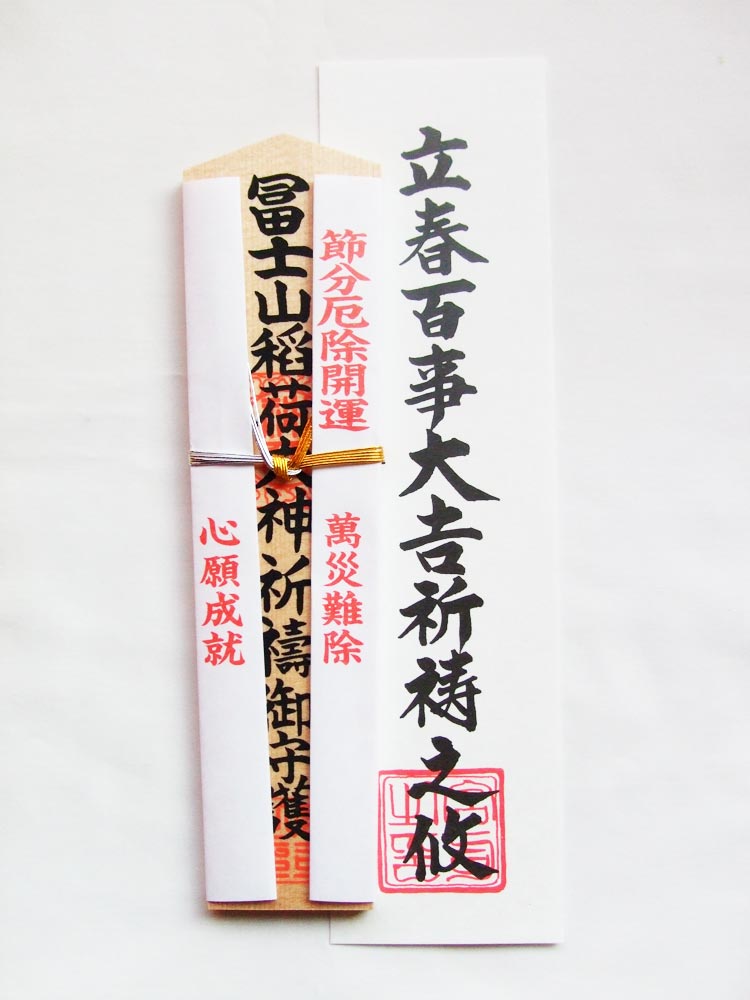 立春百事大吉祈祷之攸
節分厄除開運
萬災難除
冨士山稲荷大神祈禱御守護
心願成就